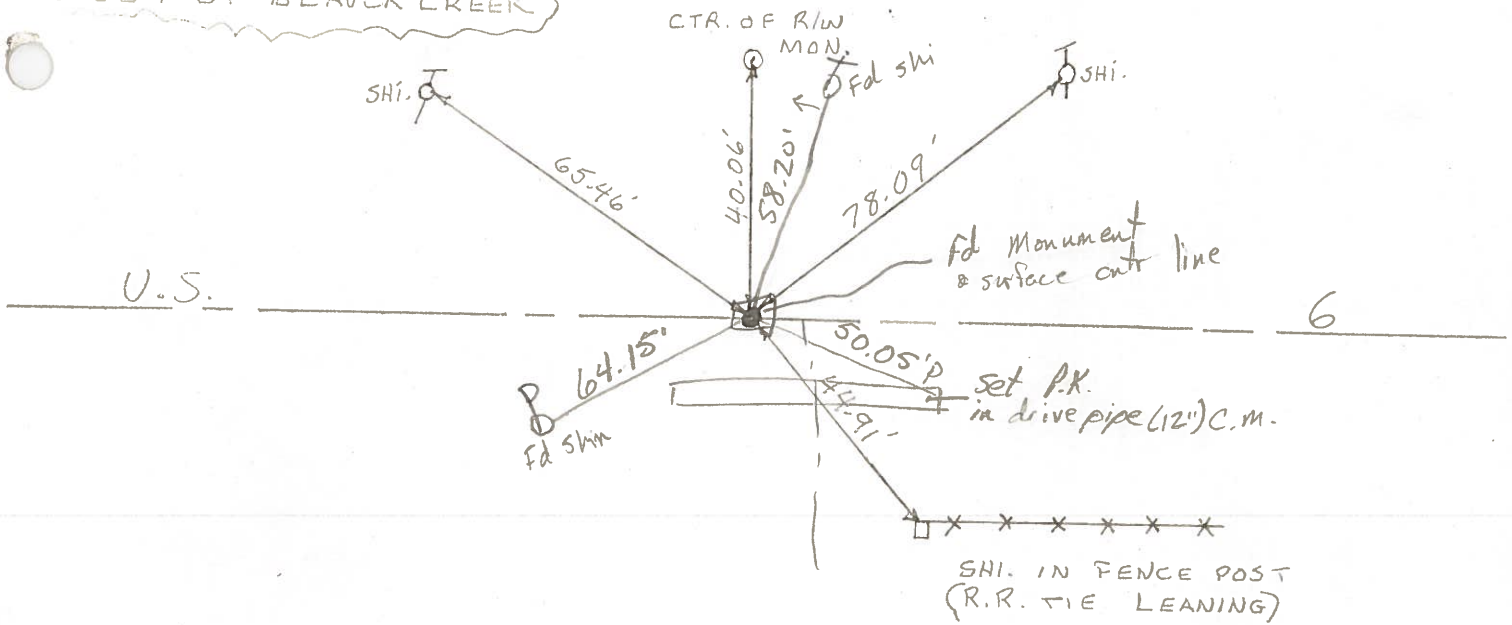 OF BEAVER CREEK)
CTR. OF R/W
MON.
SHI.
Fd shi
SHI.
65.46'
40.06'
58.20'
78.09'
Fd Monument
& surface cntr line
U.S.
6
64.15'
50.05' P
44.91'
set P.K.
in drive pipe (12") C.M.
Fd Shin
SHI. IN FENCE POST
(R.R. TIE LEANING)